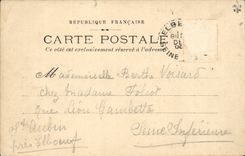 RÉPUBLIQUE FRANÇAISE
CARTE POSTALE
Ce côté est exclusivement réservé à l'adresse
ELBE
Mademoiselle Berthe
chez Madame
rue Léon Gambetta
St Aubin
près Elbeuf
Seine Inférieure